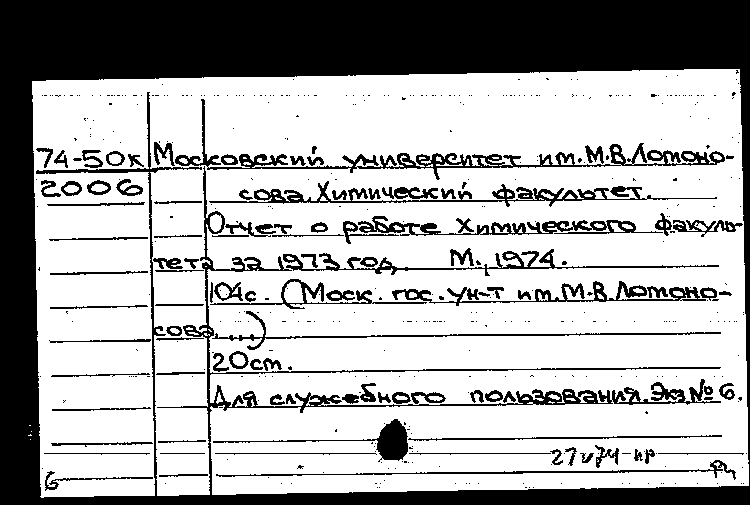 74-50к Московский университет им.М.В.Ломоно-
2006 сова. Химический факультет.
Отчет о работе Химического факуль-
тета за 1973 год. М., 1974.
104с. (Моск. гос. ун-т им.М.В.Ломоно-
сова...)
20см.
Для служебного пользования. Экз.№ 6.
6